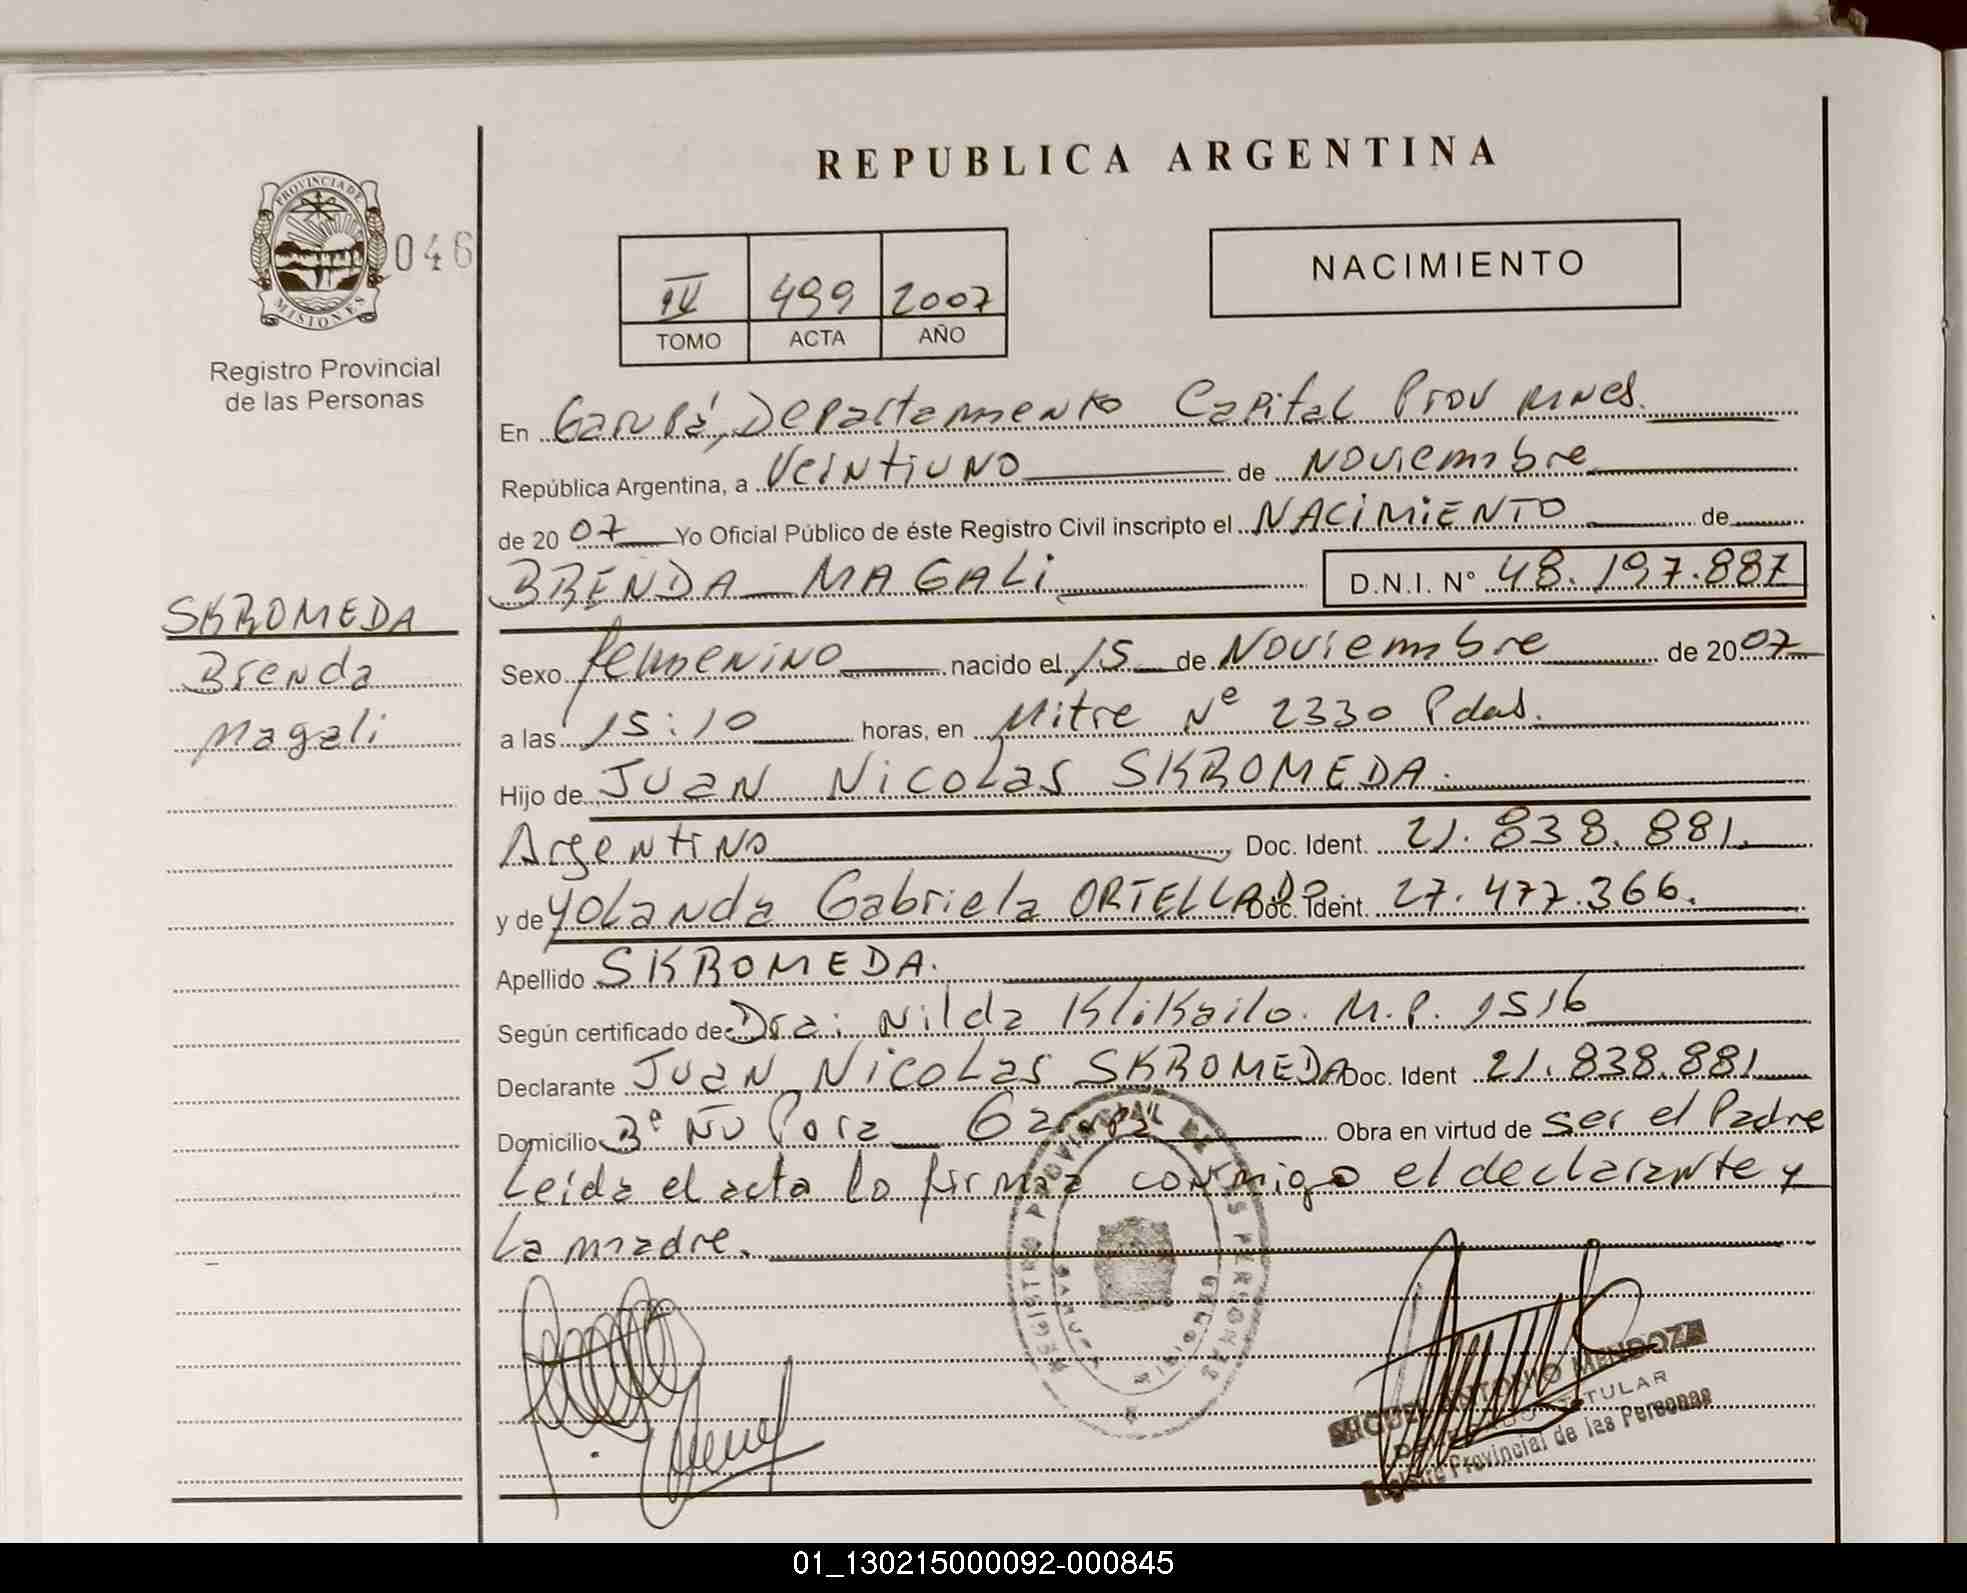 REPUBLICA ARGENTINA
PROVINCIA DE
MISIONES
046
Registro Provincial
de las Personas
IV 499 2007
TOMO ACTA AÑO
NACIMIENTO
En Garupá, Departamento Capital Prov Mnes.
República Argentina, a Veintiuno de Noviembre
de 2007 Yo Oficial Público de éste Registro Civil inscripto el NACIMIENTO de
BRENDA MAGALI D.N.I. N° 48.197.887
SKROMEDA
Brenda
Magali
Sexo femenino nacido el 15 de Noviembre de 2007
a las 15:10 horas, en Mitre Nº 2330 Pdas.
Hijo de JUAN NICOLAS SKROMEDA.
Argentino Doc. Ident. 21.838.881.
y de Yolanda Gabriela ORTELLADO Doc. Ident. 27.477.366.
Apellido SKROMEDA.
Según certificado de Dra: Nilda Klikailo. M.P. 1516
Declarante JUAN NICOLAS SKROMEDA Doc. Ident 21.838.881
Domicilio Bº Ñu Pora Garupá Obra en virtud de ser el Padre
Leída el acta la firma conmigo el declarante y
La madre.
REGISTRO PROVINCIAL DE LAS PERSONAS
GARUPA MISIONES
MIGUEL ANTONIO MENDOZA
DELEGADO TITULAR
Registro Provincial de las Personas
01_130215000092-000845